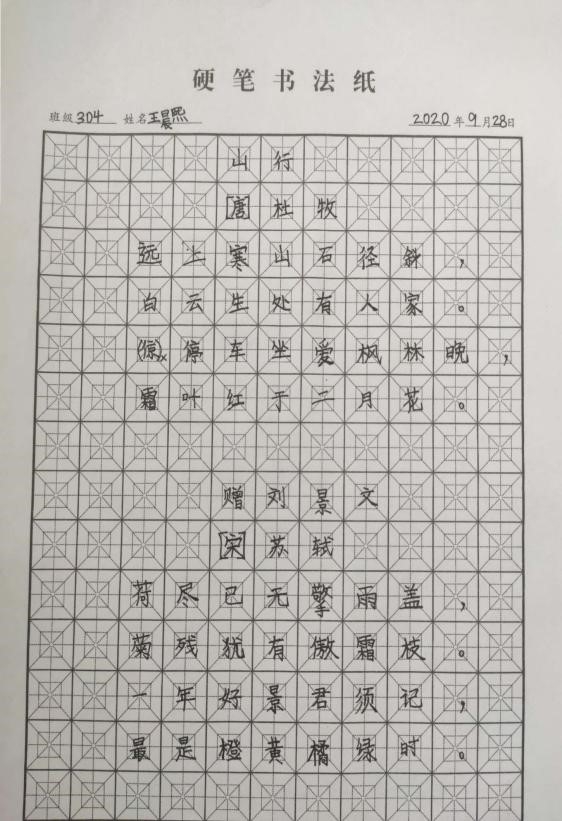 硬笔书法纸
班级304 姓名王晨熙 2020年9月28日
山行
[唐]杜牧
远上寒山石径斜，
白云生处有人家。
(倞)x停车坐爱枫林晚，
霜叶红于二月花。
赠刘景文
[宋]苏轼
荷尽已无擎雨盖，
菊残犹有傲霜枝。
一年好景君须记，
最是橙黄橘绿时。